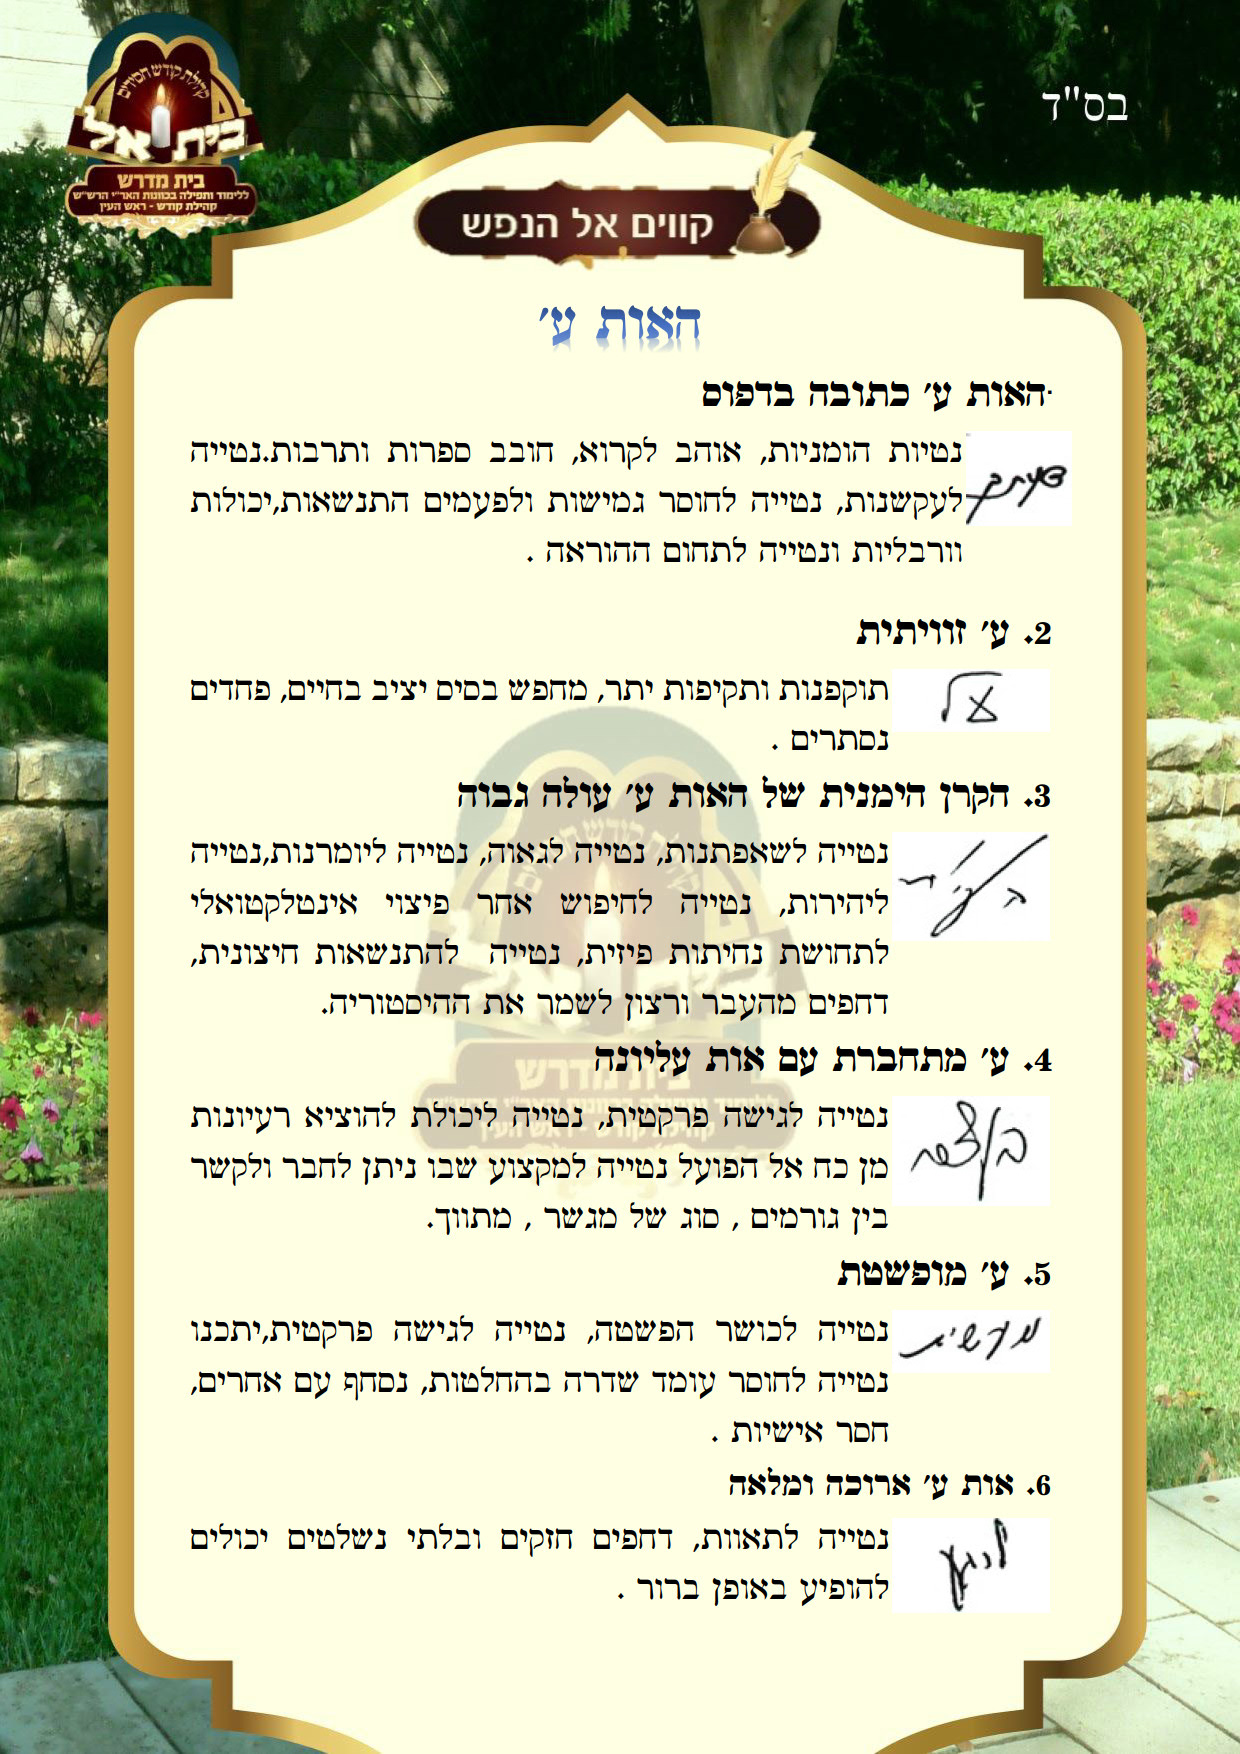 בס"ד
קהילת קודש חסידים
בית אל
בית מדרש
ללימוד ותפילה בכוונות האר"י הרש"ש
קהילת קודש - ראש העין
קווים אל הנפש
האות ע'
·האות ע' כתובה בדפוס
נטיות הומניות, אוהב לקרוא, חובב ספרות ותרבות.נטייה
לעקשנות, נטייה לחוסר גמישות ולפעמים התנשאות,יכולות
וורבליות ונטייה לתחום ההוראה .
2. ע' זוויתית
תוקפנות ותקיפות יתר, מחפש בסיס יציב בחיים, פחדים
נסתרים .
3. הקרן הימנית של האות ע' עולה גבוה
נטייה לשאפתנות, נטייה לגאוה, נטייה ליומרנות,נטייה
ליהירות, נטייה לחיפוש אחר פיצוי אינטלקטואלי
לתחושת נחיתות פיזית, נטייה להתנשאות חיצונית,
דחפים מהעבר ורצון לשמר את ההיסטוריה.
4. ע' מתחברת עם אות עליונה
נטייה לגישה פרקטית, נטייה ליכולת להוציא רעיונות
מן כח אל הפועל נטייה למקצוע שבו ניתן לחבר ולקשר
בין גורמים , סוג של מגשר , מתווך.
5. ע' מופשטת
נטייה לכושר הפשטה, נטייה לגישה פרקטית,יתכנו
נטייה לחוסר עומד שדרה בהחלטות, נסחף עם אחרים,
חסר אישיות .
6. אות ע' ארוכה ומלאה
נטייה לתאוות, דחפים חזקים ובלתי נשלטים יכולים
להופיע באופן ברור .